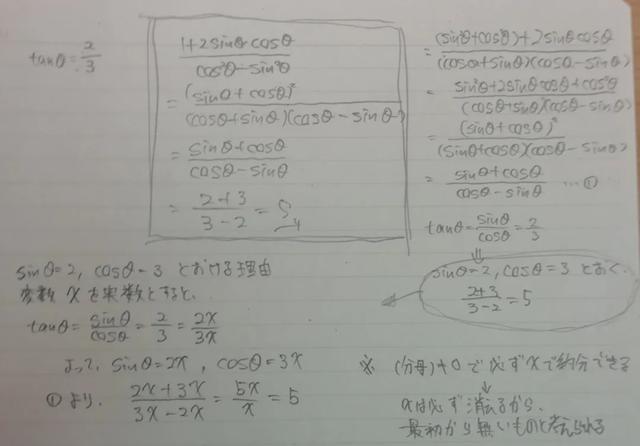 tanθ = 2/3
(1+2sinθcosθ)/(cos²θ-sin²θ)
= (sinθ+cosθ)²/(cosθ+sinθ)(cosθ-sinθ)
= (sinθ+cosθ)/(cosθ-sinθ)
= (2+3)/(3-2) = 5
= (sin²θ+cos²θ)+2sinθcosθ/(cosθ+sinθ)(cosθ-sinθ)
= (sin²θ+2sinθcosθ+cos²θ)/(cosθ+sinθ)(cosθ-sinθ)
= (sinθ+cosθ)²/(sinθ+cosθ)(cosθ-sinθ)
= (sinθ+cosθ)/(cosθ-sinθ) …①
tanθ = sinθ/cosθ = 2/3
⇓
sinθ=2, cosθ=3 とおく.
(2+3)/(3-2) = 5
sinθ=2, cosθ=3 とおける理由
変数 x を実数とすると、
tanθ = sinθ/cosθ = 2/3 = 2x/3x
よって、sinθ=2x, cosθ=3x
①より. (2x+3x)/(3x-2x) = 5x/x = 5
※ (分母)≠0で必ずxで約分できる
↓
xは必ず消えるから、
最初から無いものと考えられる